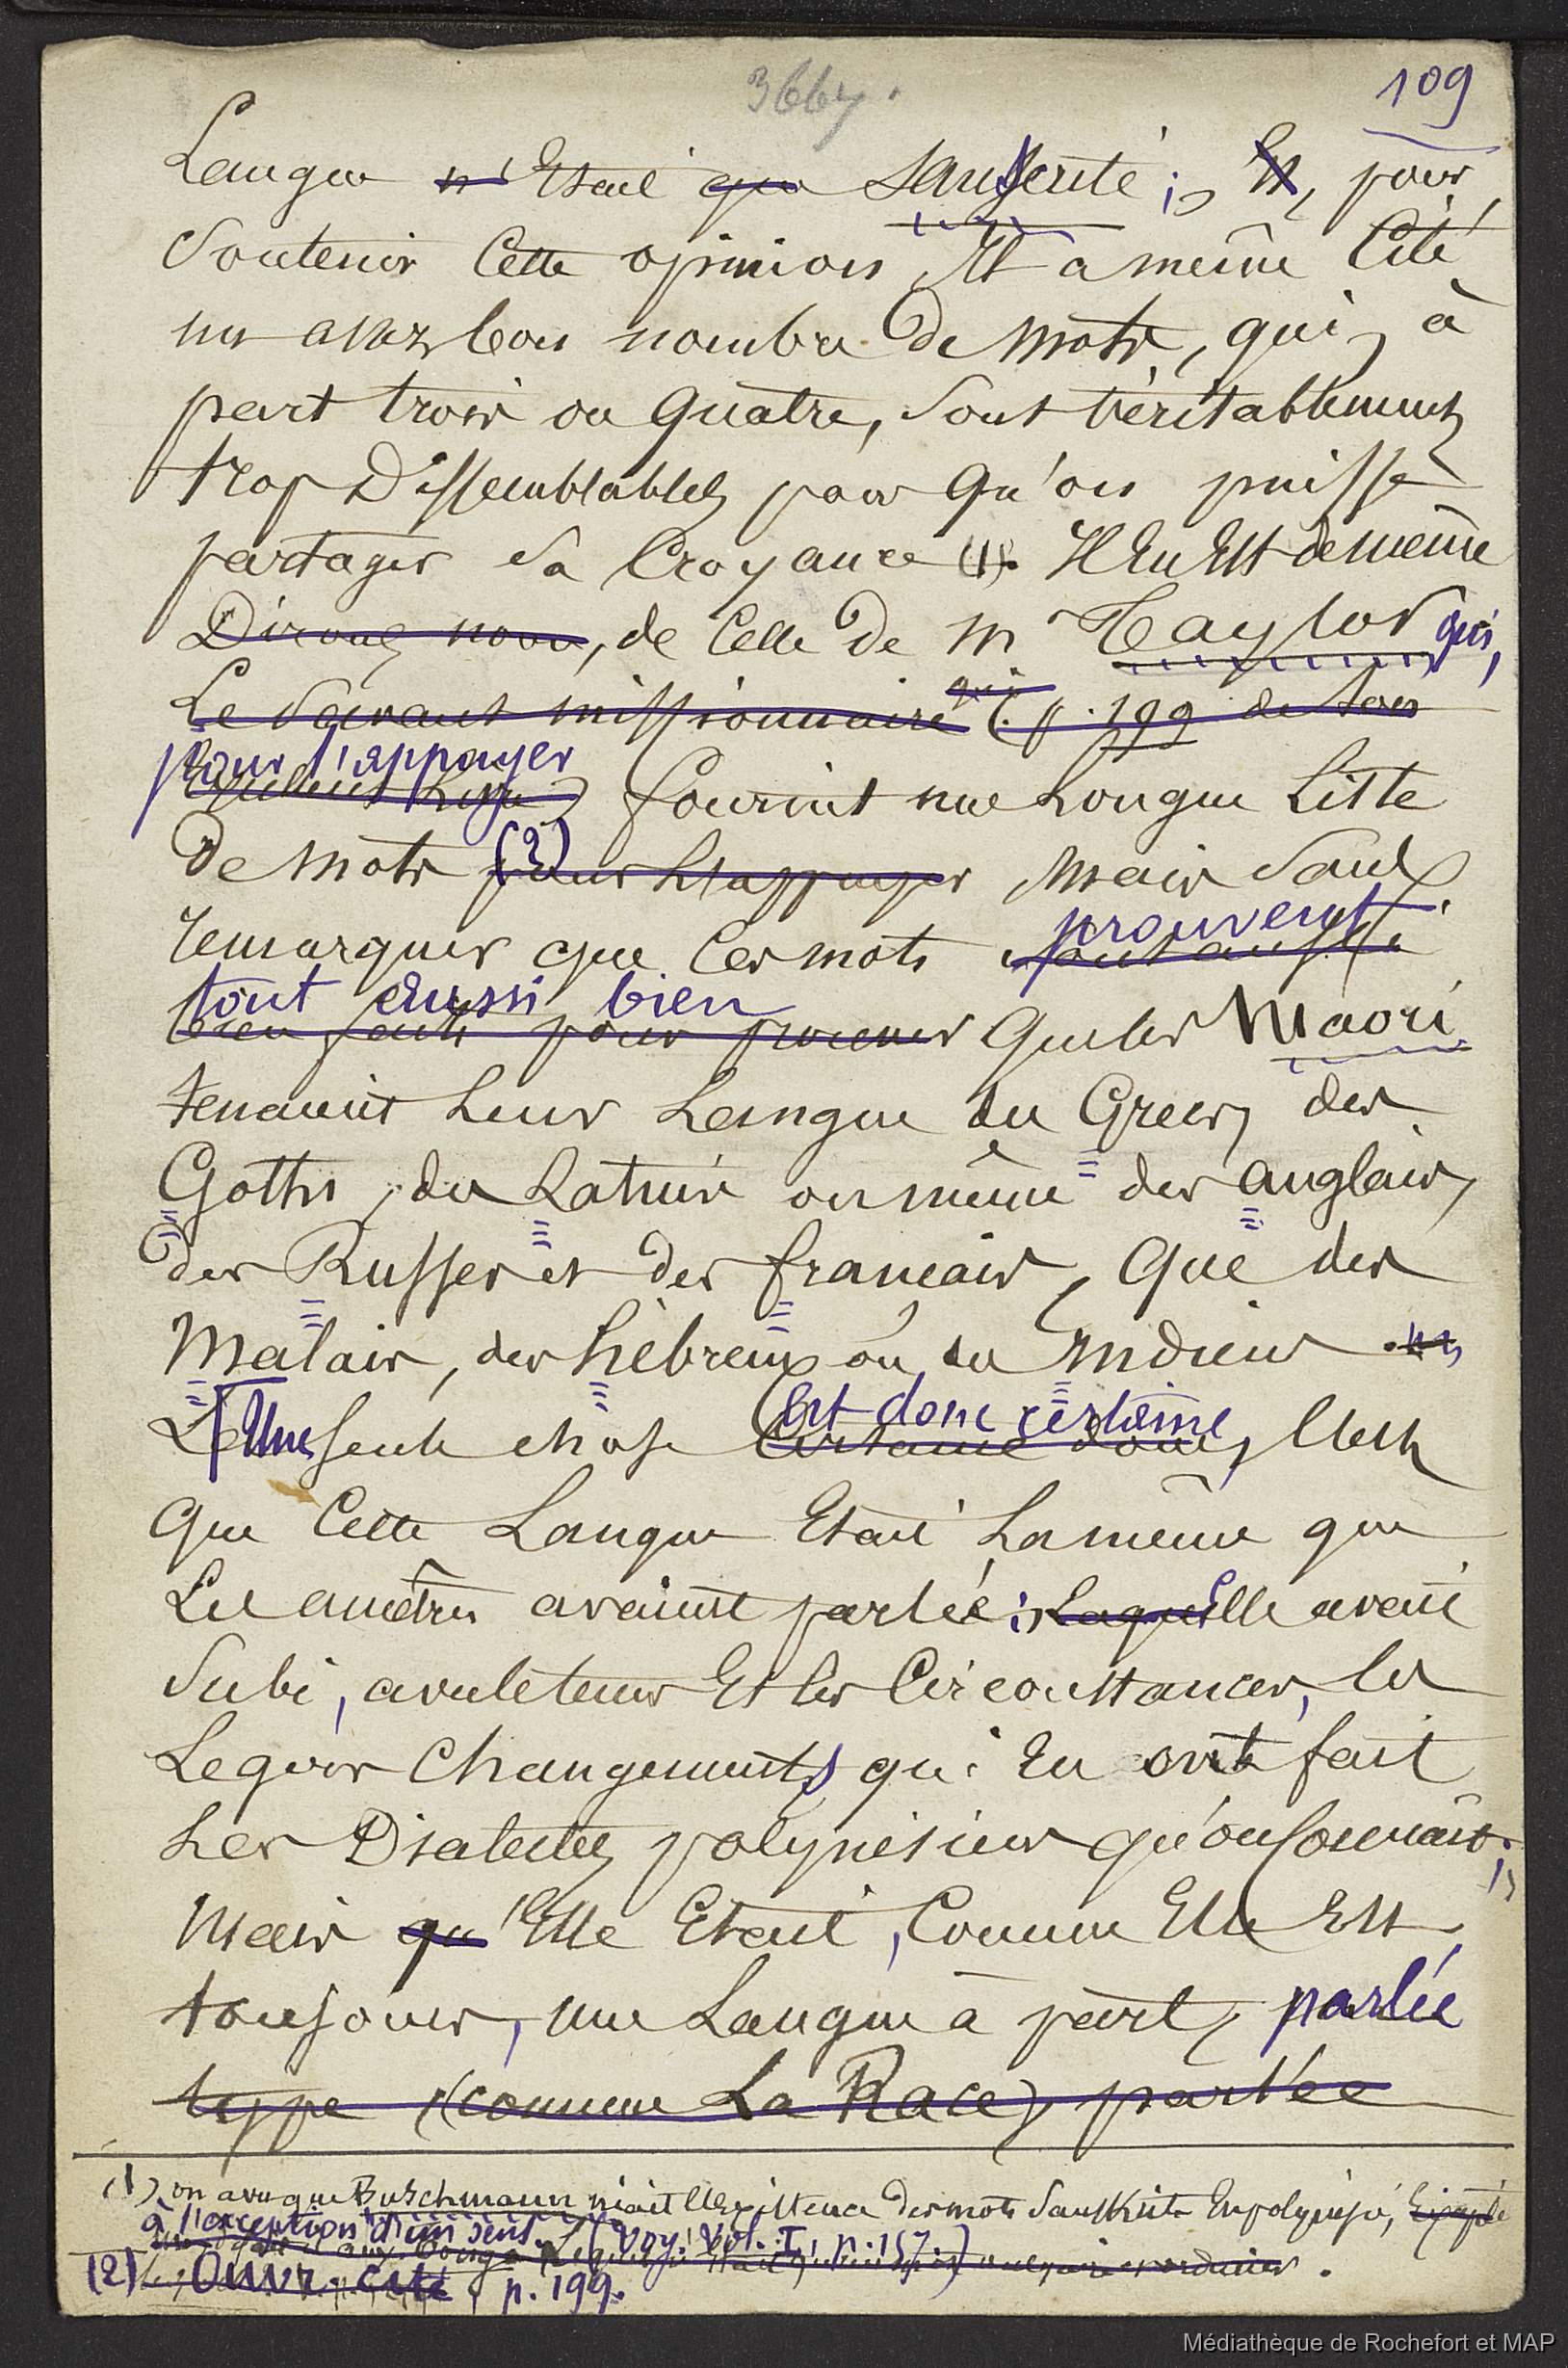 3667.
109
Langue n'Etait que Sanscrite ; Et, pour
Soutenir Cette opinion, Il a même Cité
un assez bon nombre De Mots, qui, à
part trois ou Quatre, Sont véritablement
trop Dissemblables pour Qu'on puisse
partager sa Croyance (1). Il En Est de même
Dirons nous, de Celle De Mr Taylor qui,
Le Savant missionnaire qui (. p. 199 de son
pour l'appuyer
Excellent Livre) fournit une Longue Liste
De Mots (2) pour L'appuyer Mais Sauf
remarquer que Ces mots prouvent
sont aussi
tout aussi bien
bien faits pour prouver Que les Maori
tenaient Leur Langue des Grecs, des
Goths, des Latins ou même des anglais,
des Russes et des français, Que des
Malais, des hébreux ou des Indiens
La Une Seule chose est donc certaine
Certaine donc, C'est
Que Cette Langue Etait La même que
Les ancêtres avaient parlée ; Laquelle avait
Subi, avec le temps Et les Circonstances, les
Legers Changements qui En ont fait
Les Dialectes polynésiens qu'on Connait ;
Mais qu'Elle Etait, Comme Elle Est
toujours, une Langue à part, parlée
type (comme La Race) parlée
(1) on a vu que Buschmann niait l'Existence des mots Sanskrits En polynésie,
à l'exception d'un seul. (Voy. Vol. I, p. 157)
(2) Ouvr. cité, p. 199.
Médiathèque de Rochefort et MAP